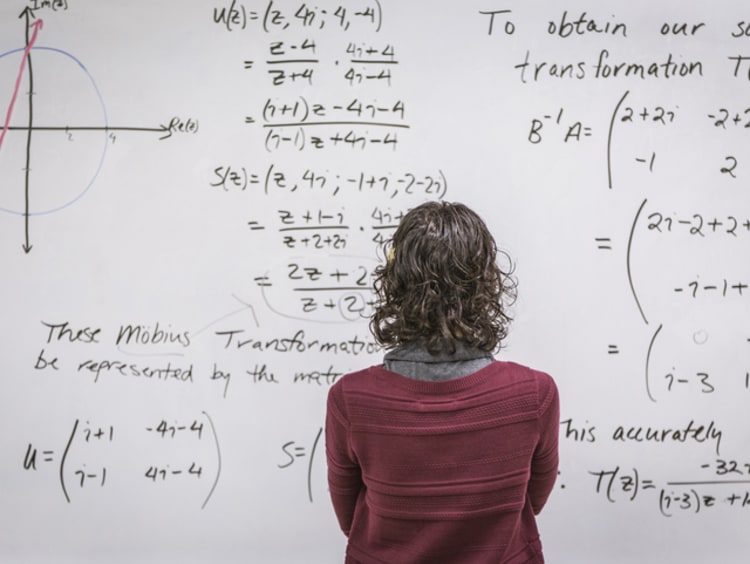 Im(z)
Re(z)
2 4
U(z) = (z, 4i; 4, -4)
= z-4/z+4 · 4i+4/4i-4
= (i+1)z-4i-4/(i-1)z+4i-4
S(z) = (z, 4i; -1+i, -2-2i)
= z+1-i/z+2+2i · 4i+
= 2z+2/z+2
These Möbius Transformatio
be represented by the matr
U = (i+1 -4i-4
i-1 4i-4)
S = (
To obtain our so
transformation T
B⁻¹A = (2+2i -2+2
-1 2
= (2i-2+2+
-i-1+
= (
i-3 1
This accurately
T(z) = -32i/(i-3)z+1